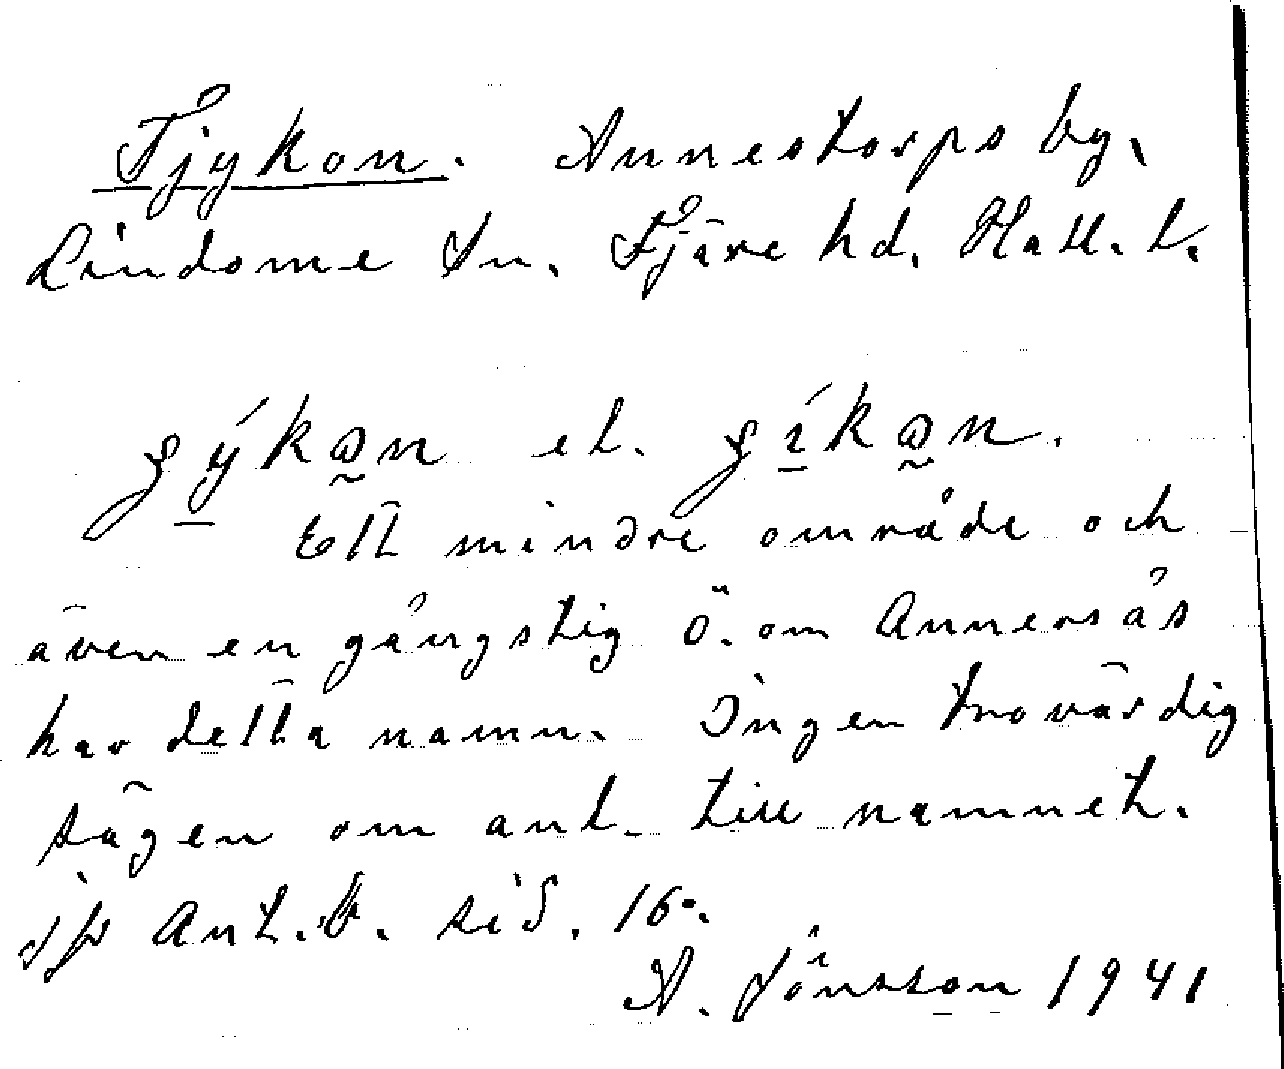 Tjykon. Annestorps by,
Lindome sn. Fjäre hd. Hall. l.
ý k n el. í k n.
Ett mindre område och
även en gångstig ö. om Annersås
har detta namn. Ingen trovärdig
sägen om anl. till namnet.
jfr Ant. b. sid. 16.
A. Jönsson 1941